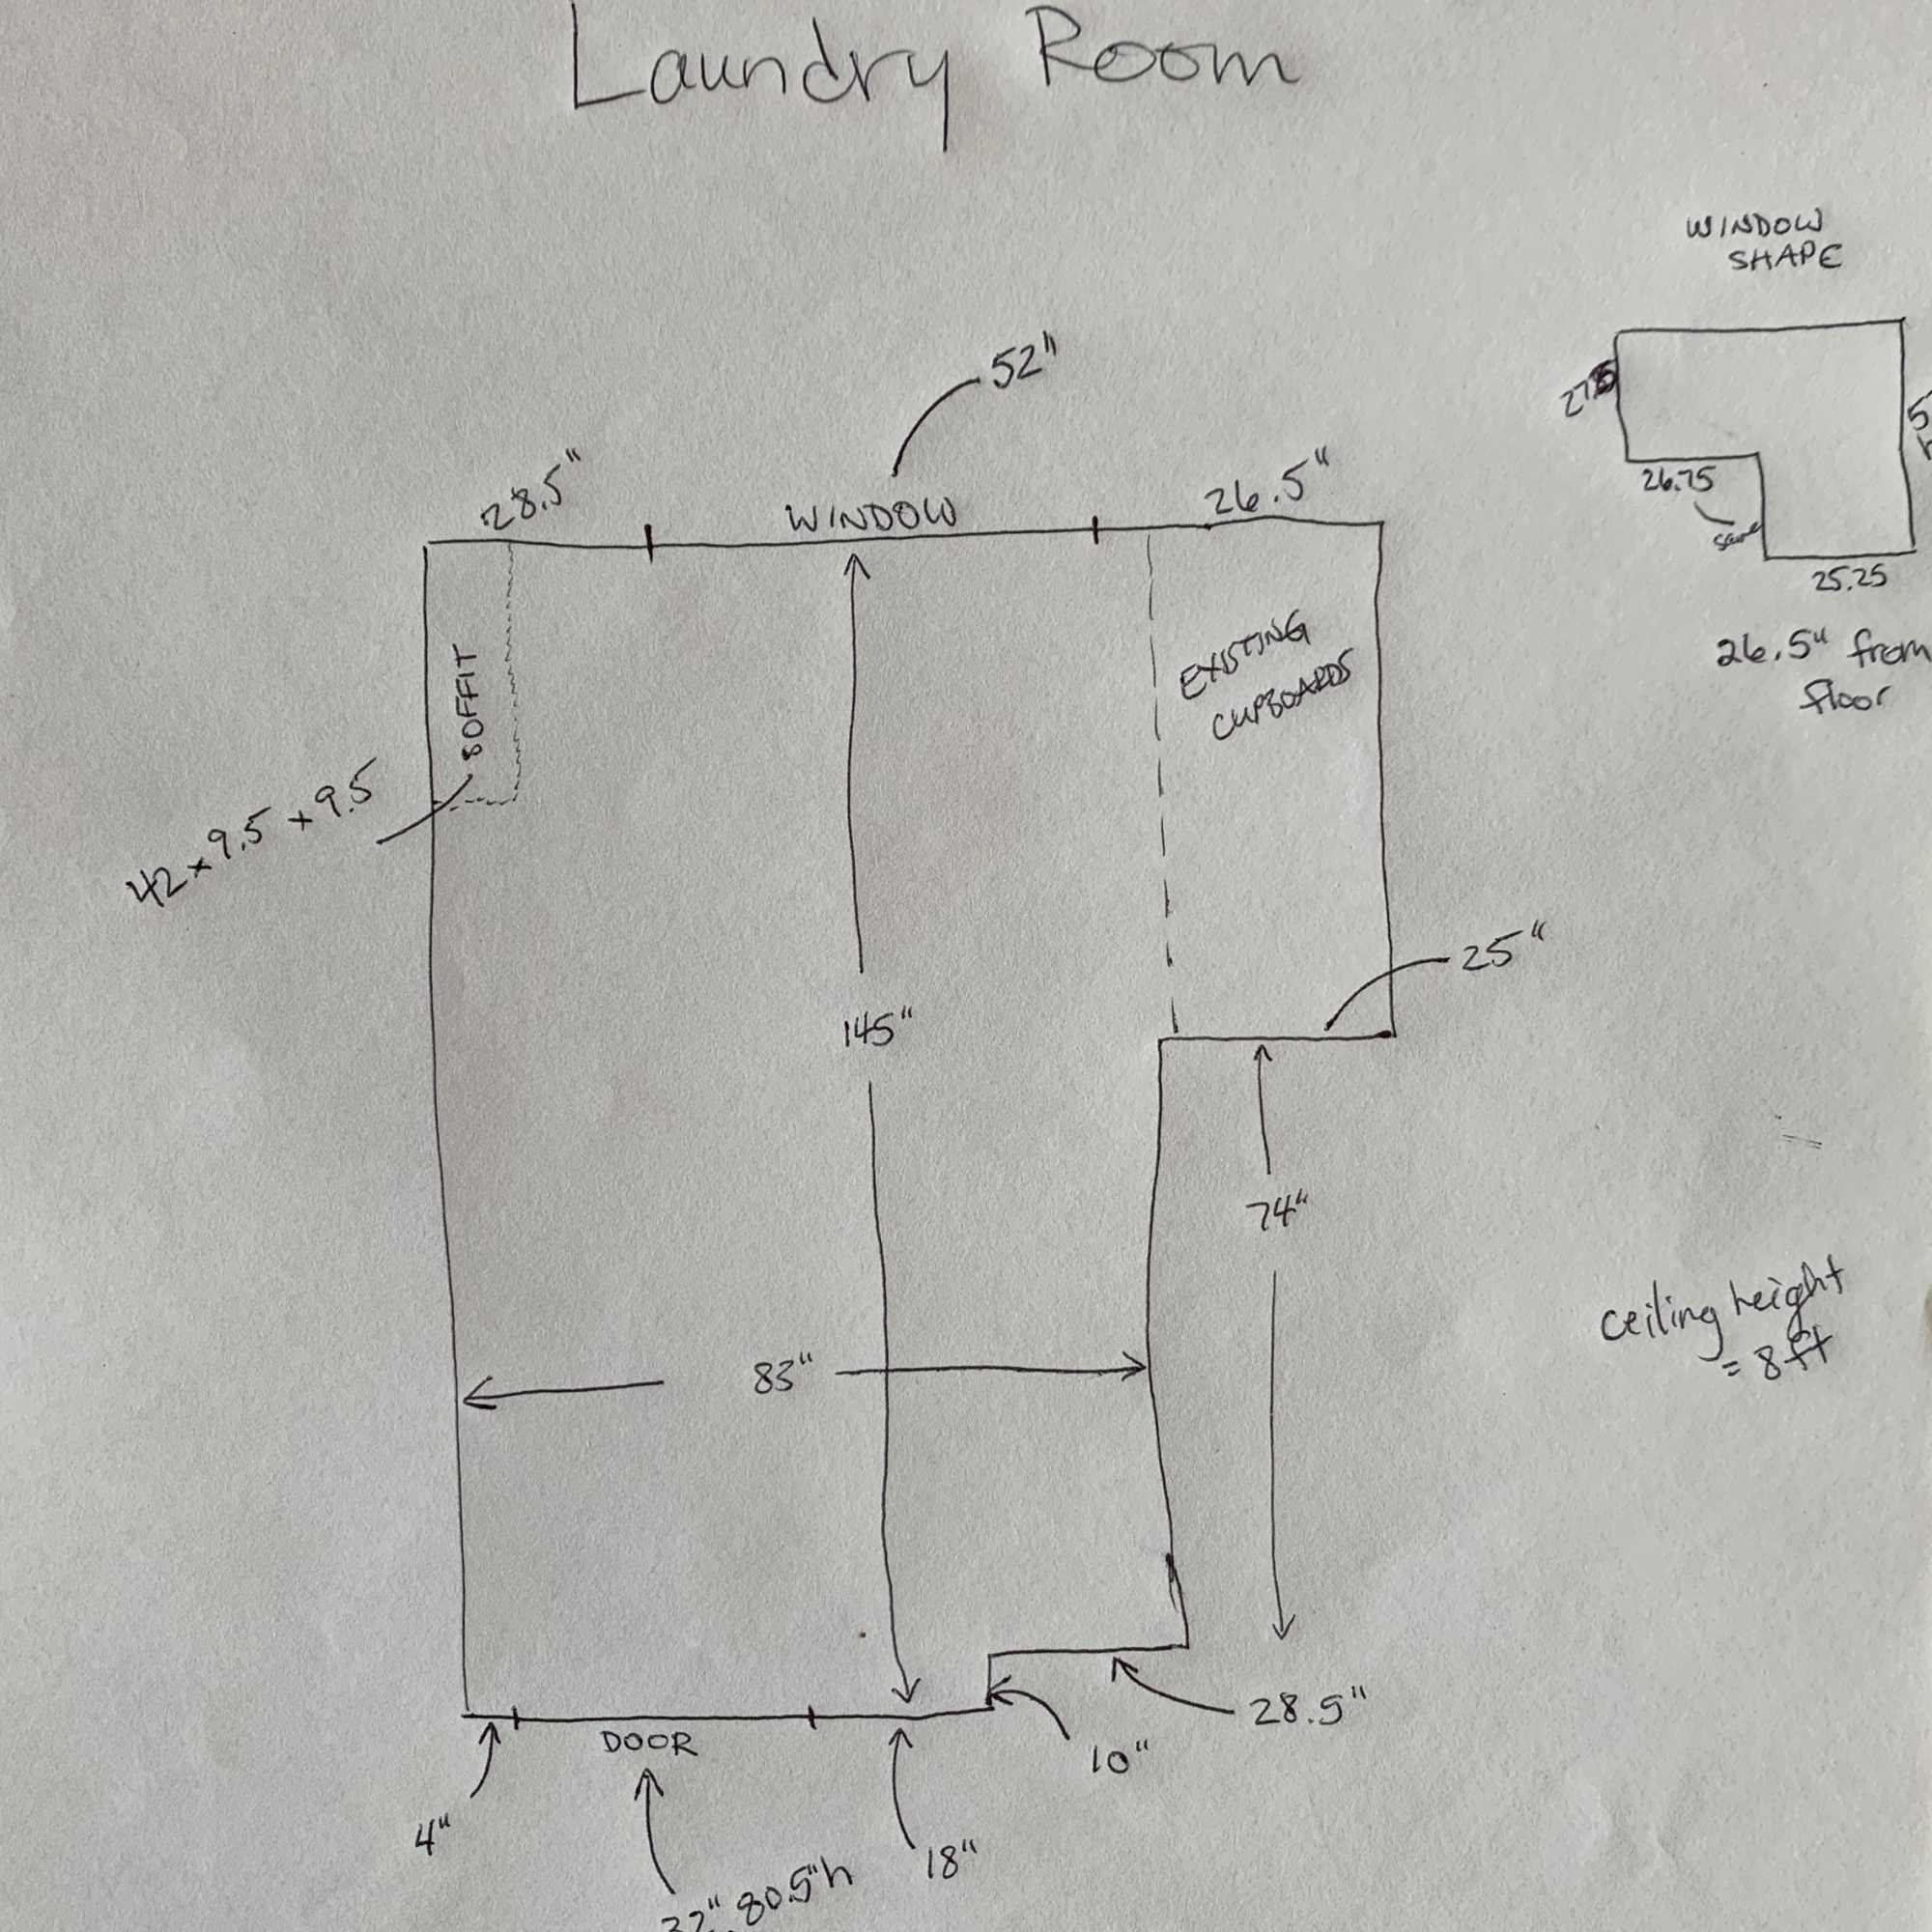 Laundry Room
WINDOW
SHAPE
52"
26.75
same
25.25
26.5" from
floor
28.5"
WINDOW
26.5"
SOFFIT
EXISTING
CUPBOARDS
42 x 9.5 x 9.5
25"
145"
74"
ceiling height
= 8ft
83"
28.5"
DOOR
10"
4"
18"
32" 80.5"h